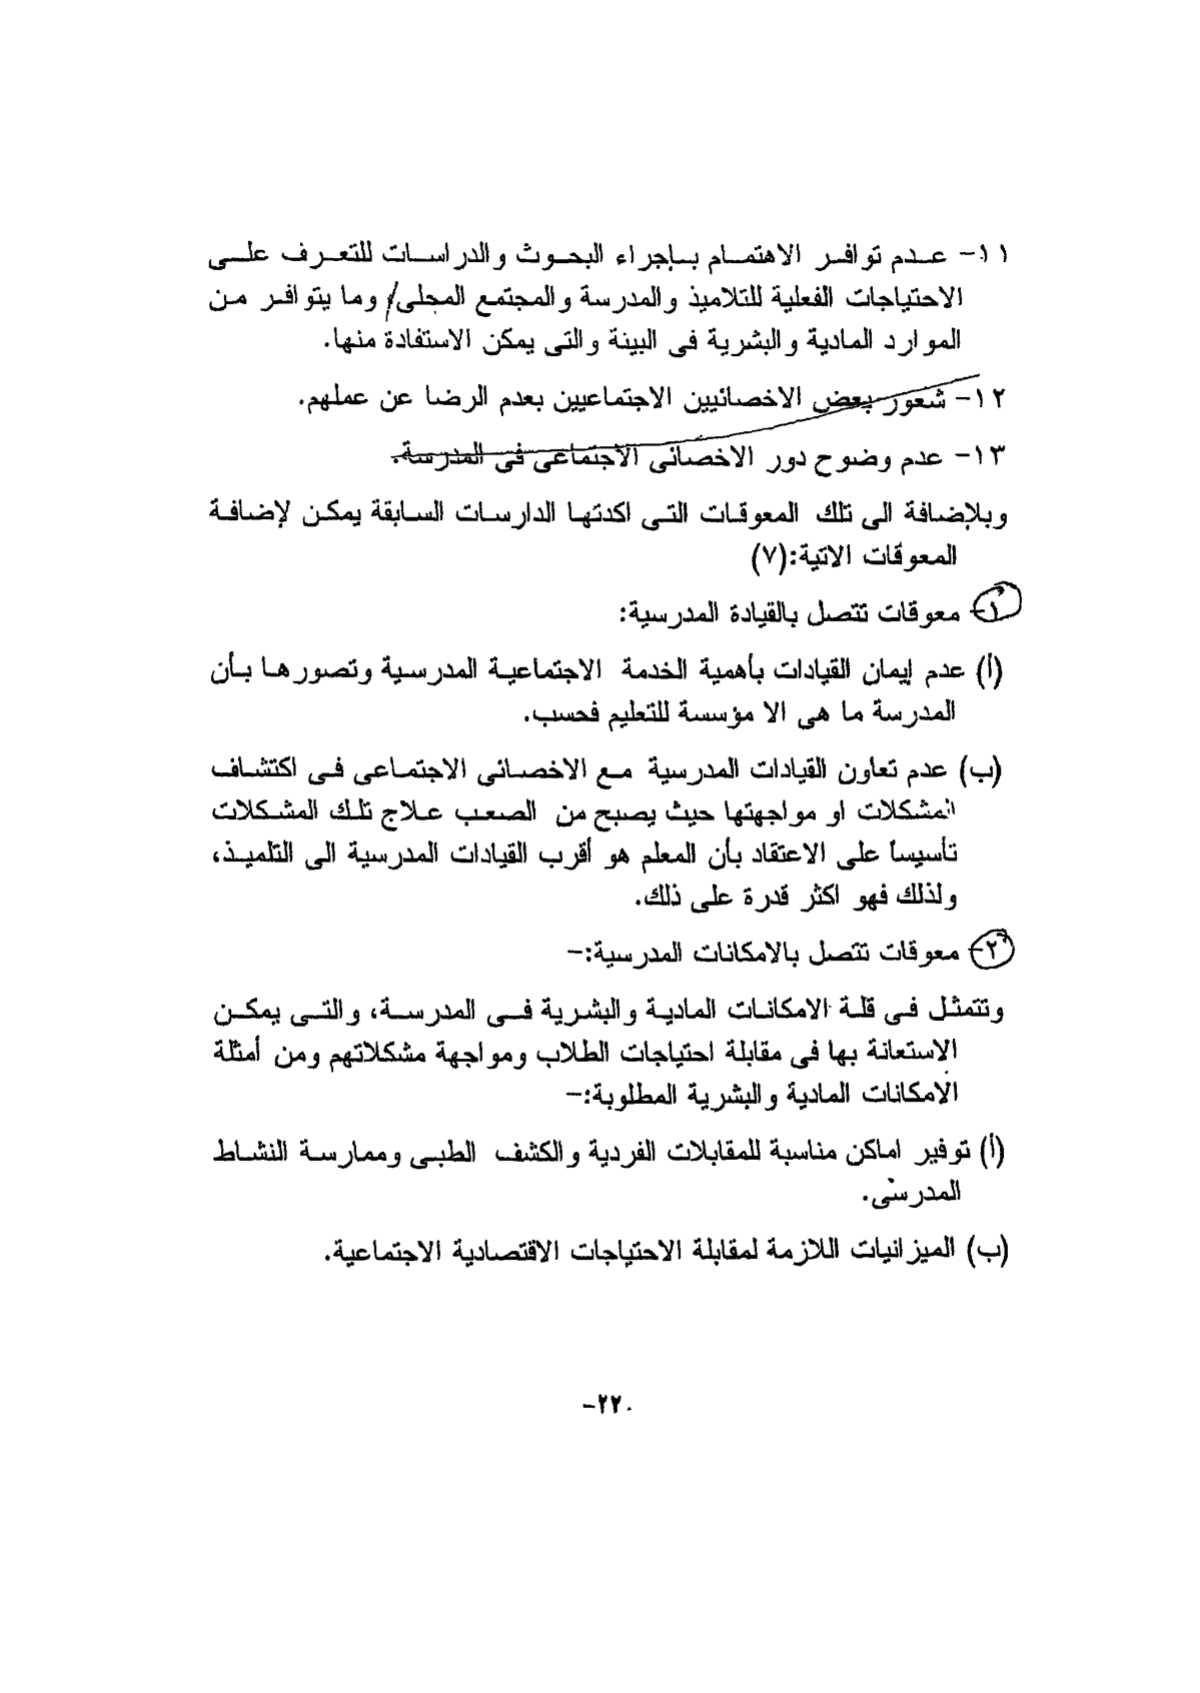 ١١- عدم توافر الاهتمام بإجراء البحوث والدراسات للتعرف على
الاحتياجات الفعلية للتلاميذ والمدرسة والمجتمع المحلى/ وما يتوافر من
الموارد المادية والبشرية فى البيئة والتى يمكن الاستفادة منها.
١٢- شعور بعض الاخصائيين الاجتماعيين بعدم الرضا عن عملهم.
١٣- عدم وضوح دور الاخصائى الاجتماعى فى المدرسة.
وبلإضافة الى تلك المعوقات التى اكدتها الدارسات السابقة يمكن لإضافة
المعوقات الاتية:(٧)
١- معوقات تتصل بالقيادة المدرسية:
(أ) عدم إيمان القيادات بأهمية الخدمة الاجتماعية المدرسية وتصورها بأن
المدرسة ما هى الا مؤسسة للتعليم فحسب.
(ب) عدم تعاون القيادات المدرسية مع الاخصائى الاجتماعى فى اكتشاف
المشكلات او مواجهتها حيث يصبح من الصعب علاج تلك المشكلات
تأسيساً على الاعتقاد بأن المعلم هو أقرب القيادات المدرسية الى التلميذ،
ولذلك فهو اكثر قدرة على ذلك.
٢- معوقات تتصل بالامكانات المدرسية:-
وتتمثل فى قلة الامكانات المادية والبشرية فى المدرسة، والتى يمكن
الاستعانة بها فى مقابلة احتياجات الطلاب ومواجهة مشكلاتهم ومن أمثلة
الامكانات المادية والبشرية المطلوبة:-
(أ) توفير اماكن مناسبة للمقابلات الفردية والكشف الطبى وممارسة النشاط
المدرسى.
(ب) الميزانيات اللازمة لمقابلة الاحتياجات الاقتصادية الاجتماعية.
-٢٢٠